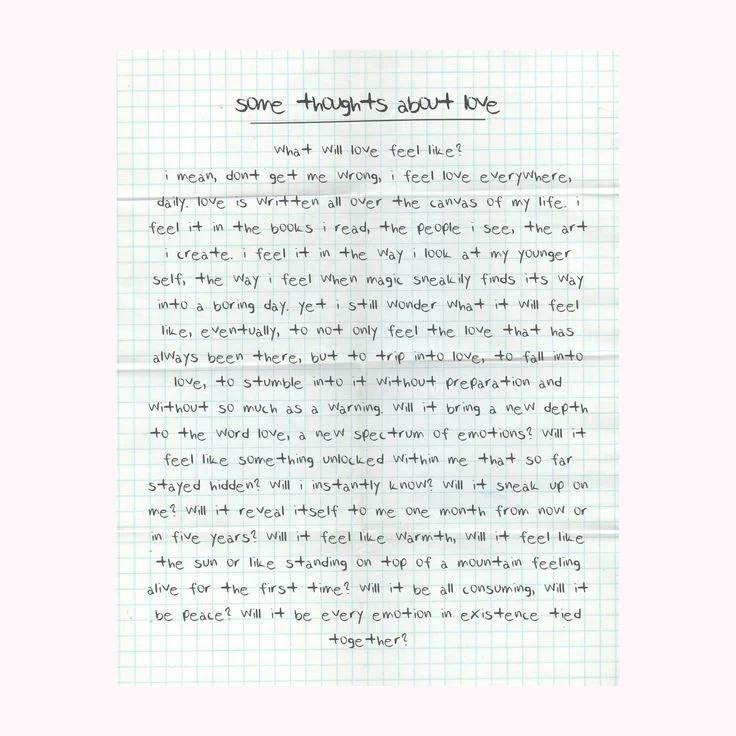 some thoughts about love
what will love feel like?
i mean, dont get me wrong, i feel love everywhere,
daily. love is written all over the canvas of my life. i
feel it in the books i read, the people i see, the art
i create. i feel it in the way i look at my younger
self, the way i feel when magic sneakily finds its way
into a boring day. yet i still wonder what it will feel
like, eventually, to not only feel the love that has
always been there, but to trip into love, to fall into
love, to stumble into it without preparation and
without so much as a warning. will it bring a new depth
to the word love, a new spectrum of emotions? will it
feel like something unlocked within me that so far
stayed hidden? will i instantly know? will it sneak up on
me? will it reveal itself to me one month from now or
in five years? will it feel like warmth, will it feel like
the sun or like standing on top of a mountain feeling
alive for the first time? will it be all consuming, will it
be peace? will it be every emotion in existence tied
together?